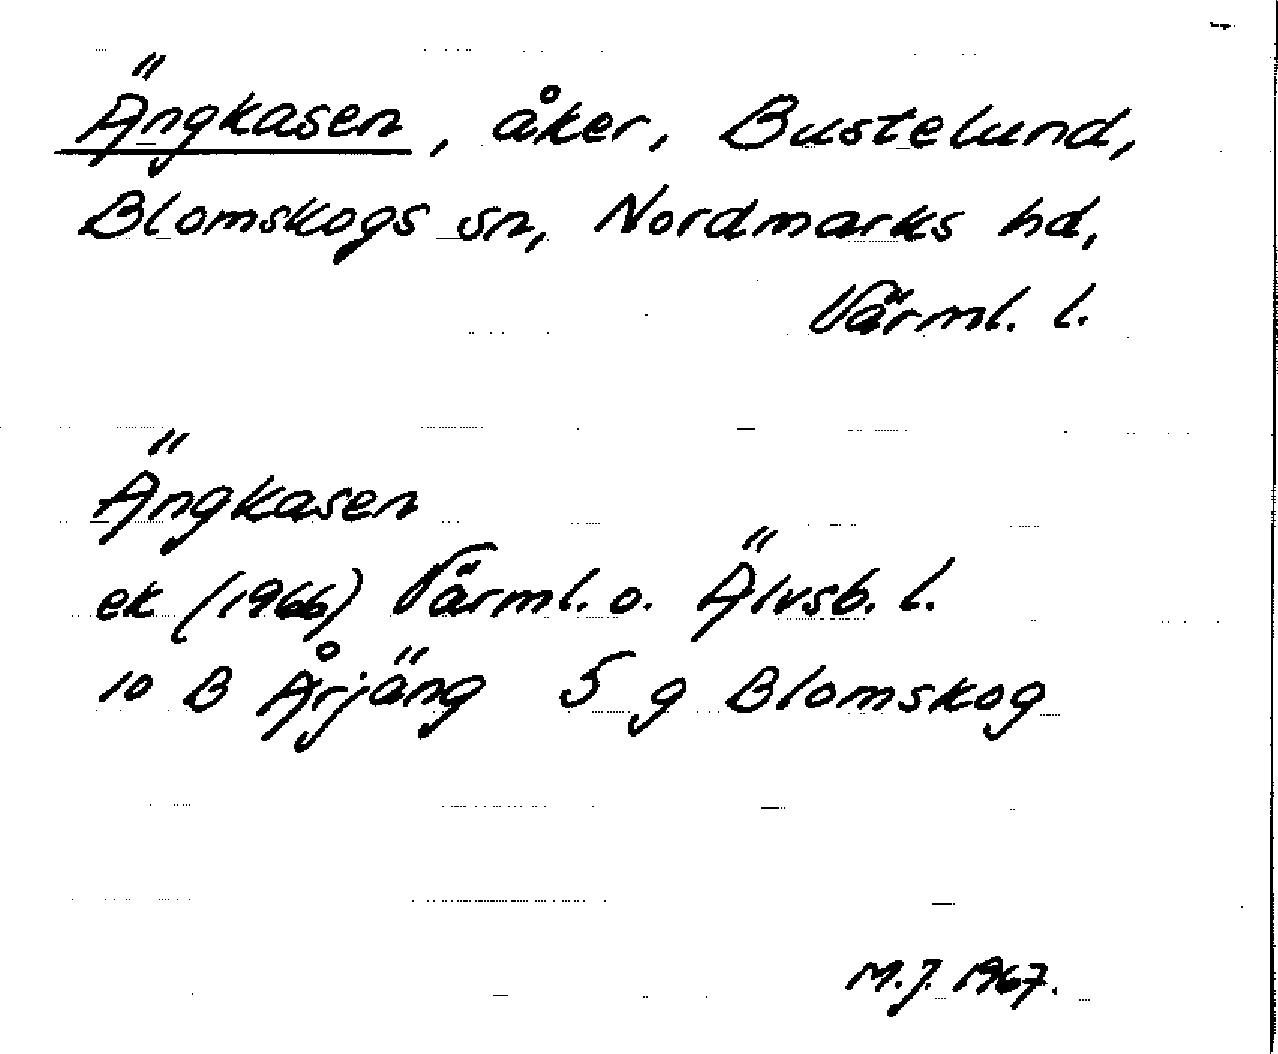 Ängkasen, åker, Bustelund,
Blomskogs sn, Nordmarks hd,
Värml. l.
Ängkasen
ek (1966) Värml. o. Älvsb. l.
10 B Årjäng 5 g Blomskog
M.J. 1967.